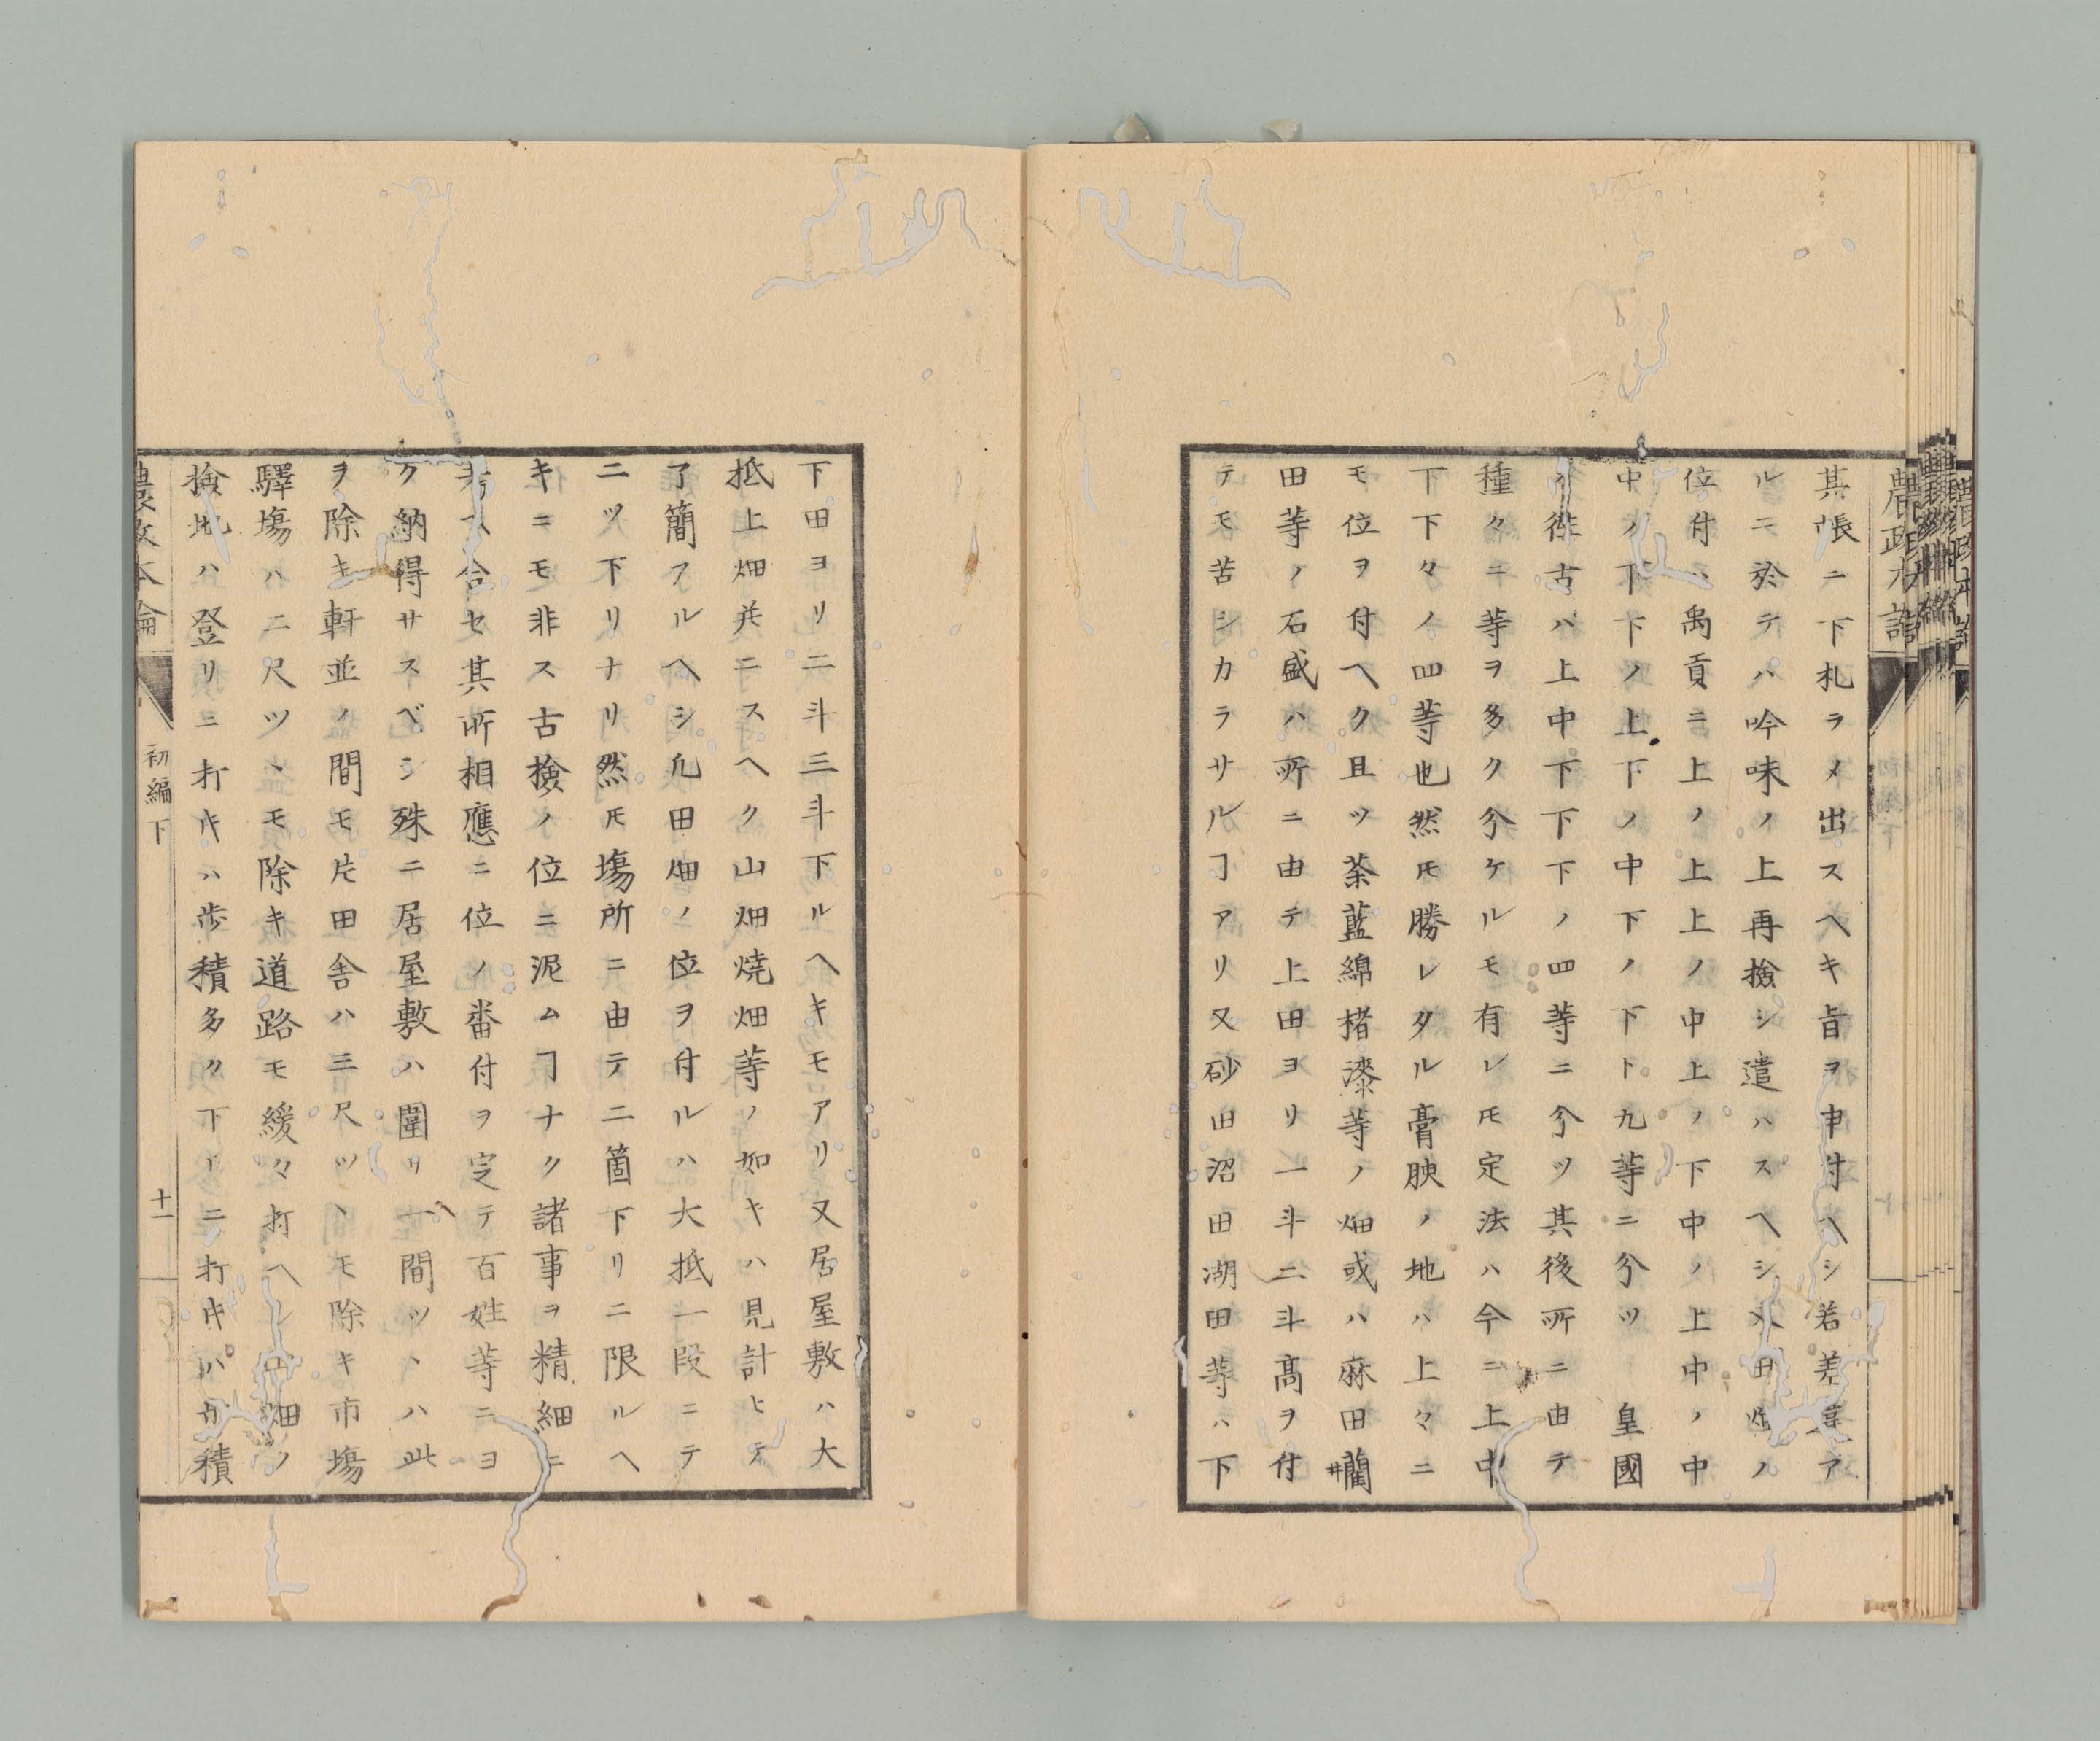 農政本論
其帳ニ下札ヲメ出スヘキ旨ヲ申付ヘシ若差禀ア
ルニ於テハ吟味ノ上再撿シ遣ハスヘシ又田畑ノ
位付ハ禹貢ニ上ノ上上ノ中上ノ下中ノ上中ノ中
中ノ下下ノ上下ノ中下ノ下ト九等ニ分ツ 皇國
ノ徃古ハ上中下下下ノ四等ニ分ツ其後所ニ由テ
種々ニ等ヲ多ク分ケルモ有レ𪜈定法ハ今ニ上中
下下々ノ四等也然𪜈勝レタル膏腴ノ地ハ上々ニ
モ位ヲ付ヘク且ツ茶藍綿楮漆等ノ畑或ハ麻田藺
田等ノ石盛ハ所ニ由テ上田ヨリ一斗二斗髙ヲ付
テモ苦シカラサルヿアリ又砂田沼田湖田等ハ下
下田ヨリ二斗三斗下ルヘキモアリ又居屋敷ハ大
抵上畑并ニスヘク山畑焼畑等ノ如キハ見計ヒテ
了簡アルヘシ凢田畑ノ位ヲ付ルハ大抵一段ニテ
二ツ下リナリ然𪜈塲所ニ由テ二箇下リニ限ルヘ
キニモ非ス古撿ノ位ニ泥ムヿナク諸事ヲ精細ニ
考ヘ合セ其所相應ニ位ノ番付ヲ定テ百姓等ニヨ
ク納得サスベシ殊ニ居屋敷ハ圍リ一間ツヽハ此
ヲ除キ軒並ノ間モ片田舎ハ三尺ツヽモ除キ市塲
驛塲ハ二尺ツヽモ除キ道路モ緩々打ヘシ田畑ノ
撿地ハ登リニ打キハ歩積多ク下リニ打キハ歩積
農政本論
初編下
十一